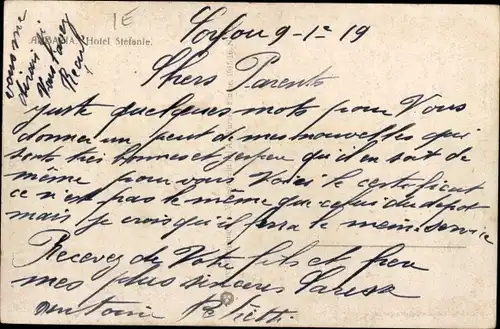 ABBAZIA. Hotel Stefanie.
vous me
direz si
Vous l'avez
Reçu
9-1-19
Chers Parents
juste quelques mots pour Vous
donner un peut de mes nouvelles qui
sont très bonnes et j'espere qu'il en soit de
même pour vous Voici le certificat
ce n'est pas le même que celui du depot
mais je crois qu'il fera le meme service
Recevez de Votre fils et frere
mes plus sinceres
Antoine